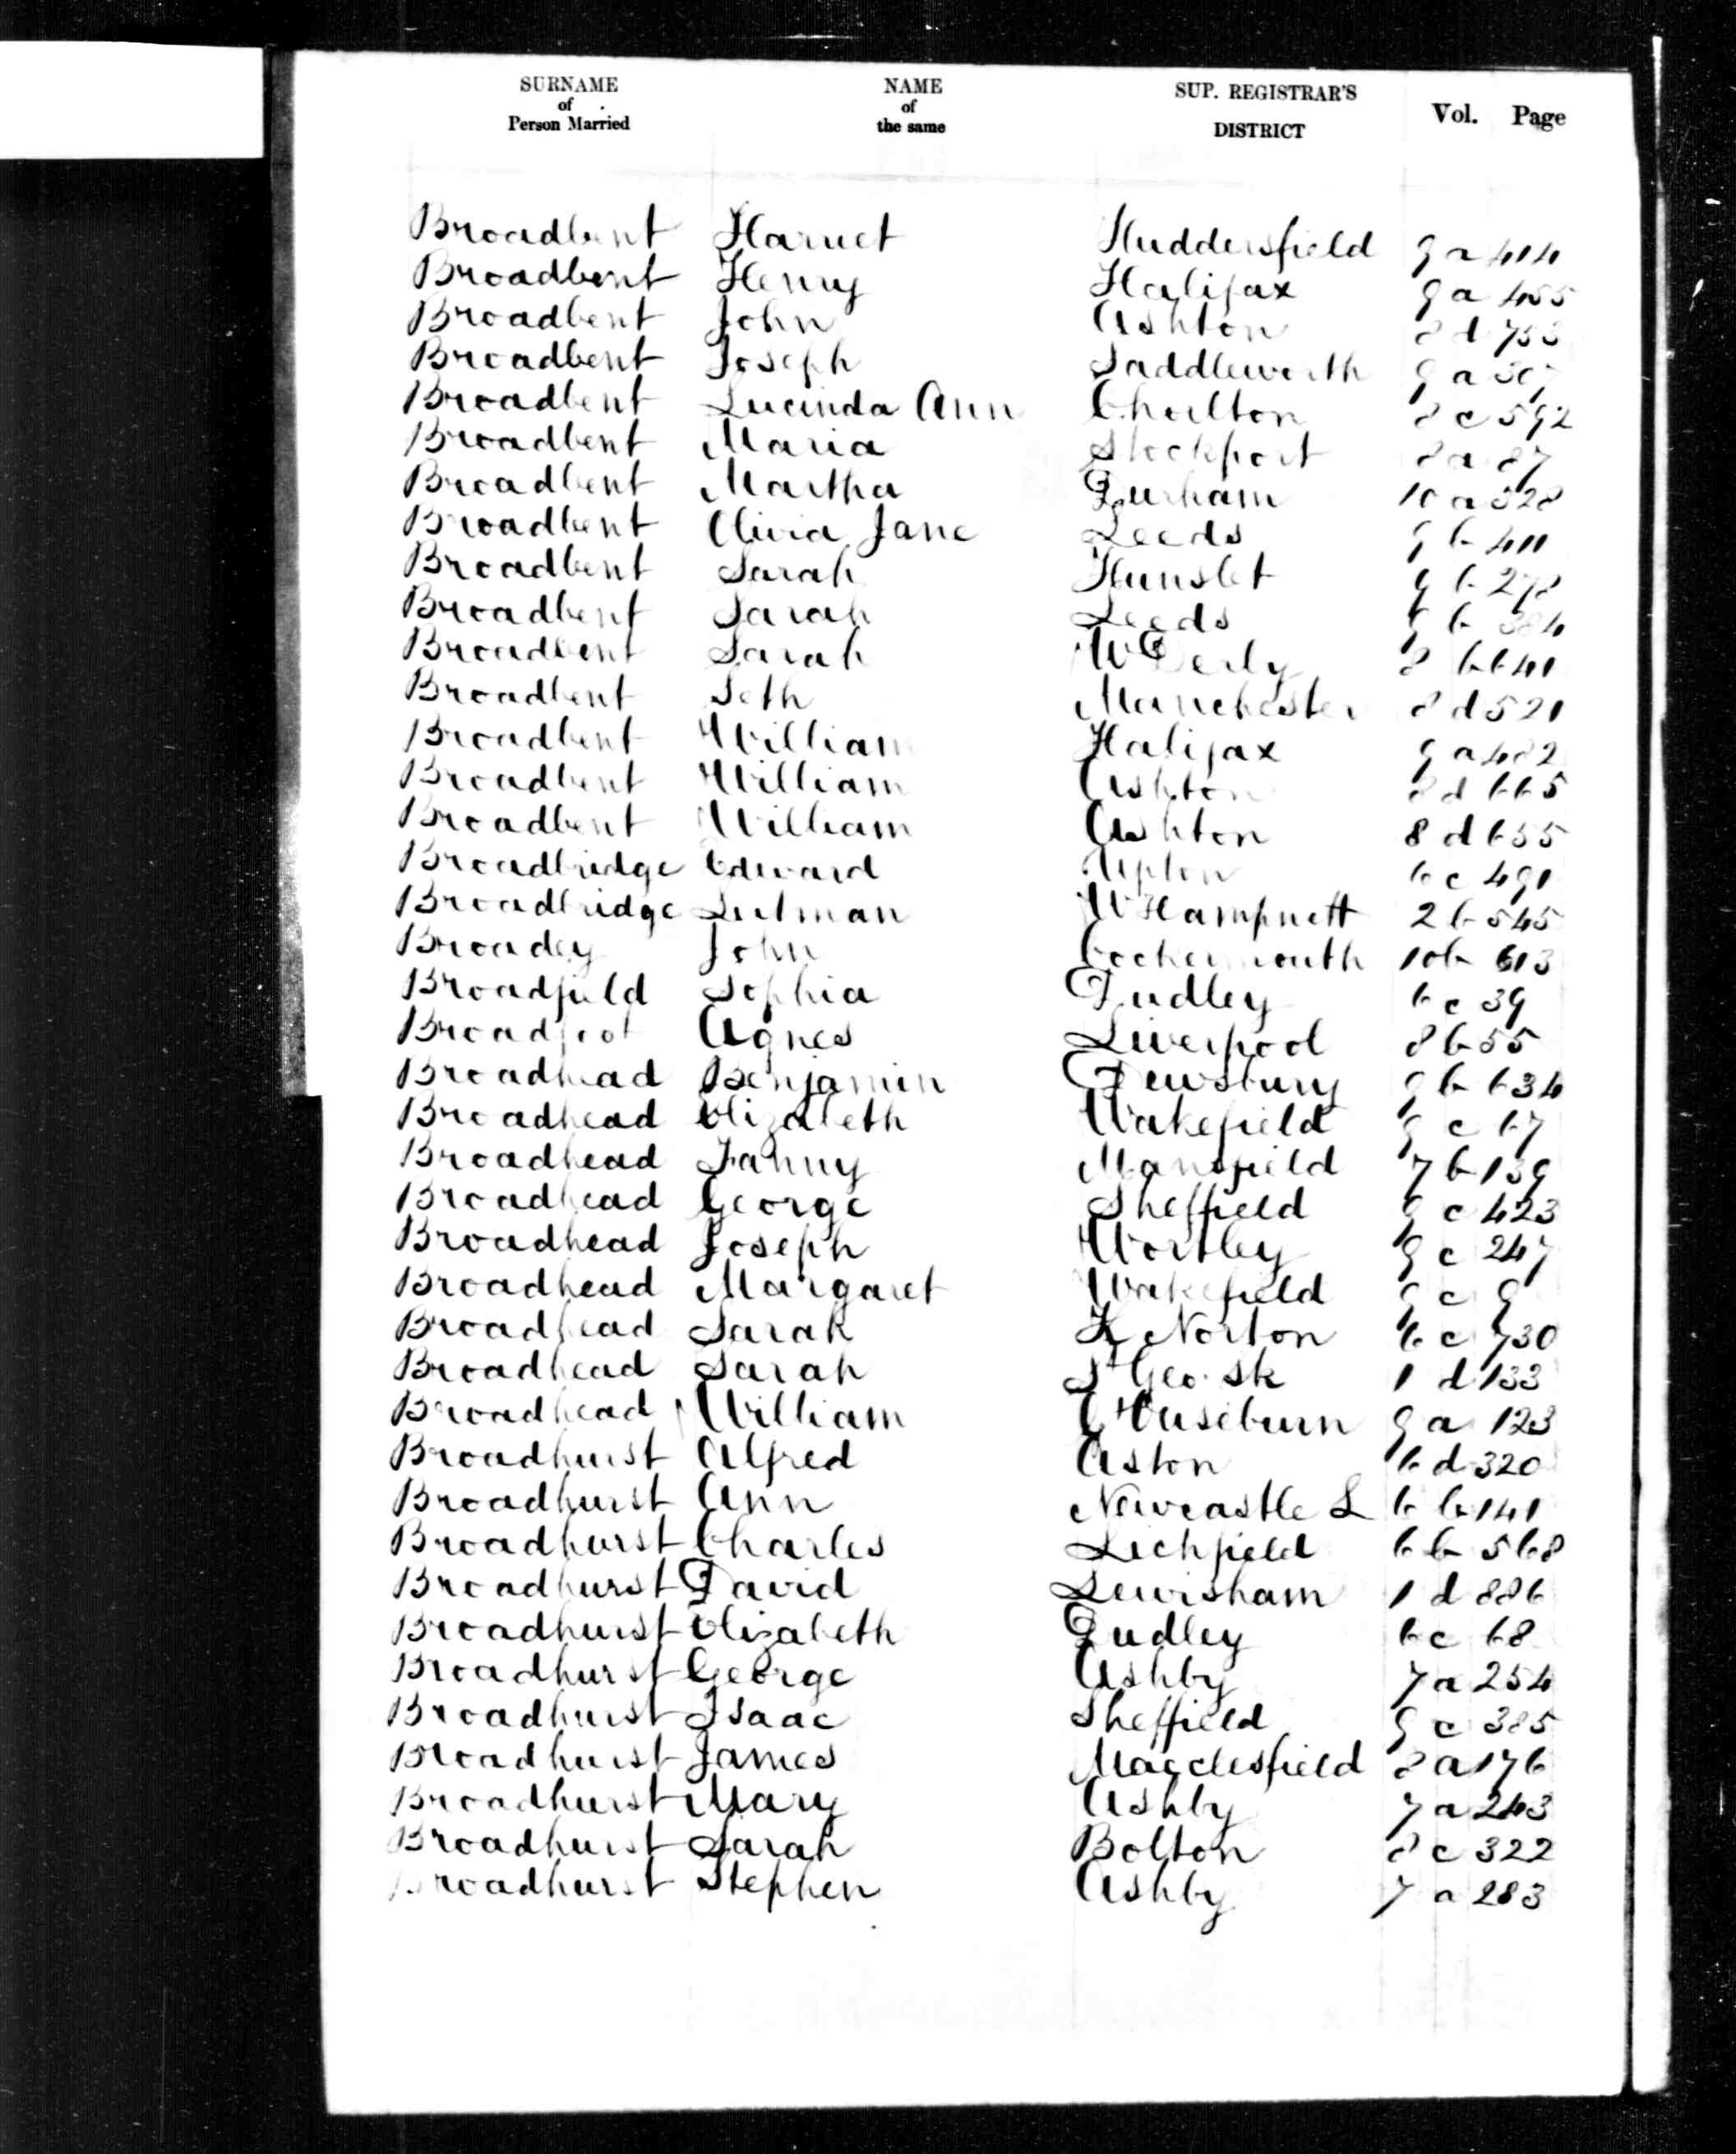 SURNAME of Person Married NAME of the same SUP. REGISTRAR'S DISTRICT Vol. Page
Broadbent Harriet Huddersfield 9a 414
Broadbent Henry Halifax 9a 455
Broadbent John Ashton 8d 753
Broadbent Joseph Saddleworth 9a 307
Broadbent Lucinda Ann Chorlton 8c 592
Broadbent Maria Stockport 8a 87
Broadbent Martha Durham 10a 328
Broadbent Olivia Jane Leeds 9b 411
Broadbent Sarah Hunslet 9b 278
Broadbent Sarah Leeds 9b 384
Broadbent Sarah W Derby 8b 641
Broadbent Seth Manchester 8d 521
Broadbent William Halifax 9a 482
Broadbent William Ashton 8d 665
Broadbent William Ashton 8d 655
Broadbridge Edward Upton 6c 491
Broadbridge Lutman W Hampnett 2b 545
Broadey John Cockermouth 10b 613
Broadfield Sophia Dudley 6c 39
Broadfoot Agnes Liverpool 8b 55
Broadhead Benjamin Dewsbury 9b 634
Broadhead Elizabeth Wakefield 9c 67
Broadhead Fanny Mansfield 7b 139
Broadhead George Sheffield 9c 423
Broadhead Joseph Wortley 9c 247
Broadhead Margaret Wakefield 9c 9
Broadhead Sarah K Norton 6c 730
Broadhead Sarah St Geo. Sk 1d 133
Broadhead William G Ouseburn 9a 123
Broadhurst Alfred Aston 6d 320
Broadhurst Ann Newcastle L 6b 141
Broadhurst Charles Lichfield 6b 568
Broadhurst David Lewisham 1d 886
Broadhurst Elizabeth Dudley 6c 68
Broadhurst George Ashby 7a 254
Broadhurst Isaac Sheffield 9c 385
Broadhurst James Macclesfield 8a 176
Broadhurst Mary Ashby 7a 243
Broadhurst Sarah Bolton 8c 322
Broadhurst Stephen Ashby 7a 283